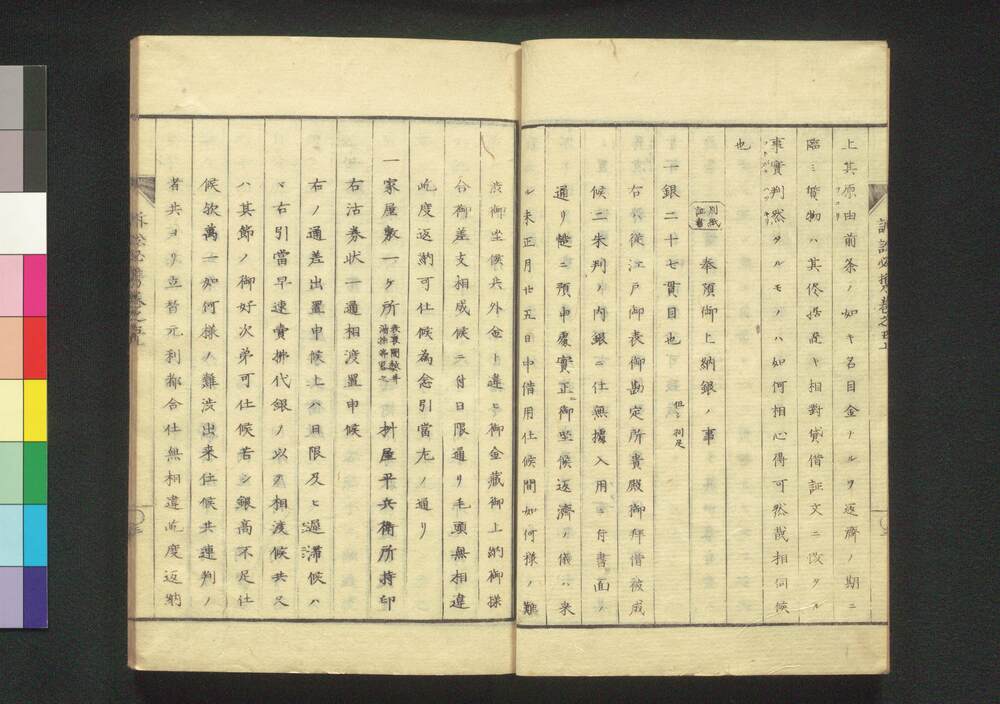 上其原由前条ノ如キ名目金ナルヲ返濟ノ期ニ
臨ミ貨物ハ其侭据置キ相對貸借証文ニ改タル
事實判然タルモノハ如何相心得可然哉相伺候
也
別紙
証書
奉預御上納銀ノ事
一銀二十七貫目也
但シ利足
右ハ從江戸御表御勘定所貴殿御拜借被成
候二朱判ノ内銀ニ仕無據入用ニ付書面ノ
通リ慥ニ預申處實正御坐候返濟ノ儀ハ来
ル未正月廿五日中借用仕候間如何様ノ難
渋御坐候共外金ト違ヒ御金藏御上納御操
合御差支相成候ニ付日限通リ毛頭無相違
屹度返納可仕候為念引當左ノ通リ
一家屋敷一ケ所
表裏間数并
升屋平兵衛所持印
右沽券状一通相渡置申候
右ノ通差出置申候上ハ日限及ヒ遲滞候ハ
ヽ右引當早速賣拂代銀ノ以テ相渡候共又
ハ其節ノ御好次弟可仕候若シ銀高不足仕
候欤萬一如何様ノ難渋出来仕候共連判ノ
者共ヨリ立替元利都合仕無相違屹度返納